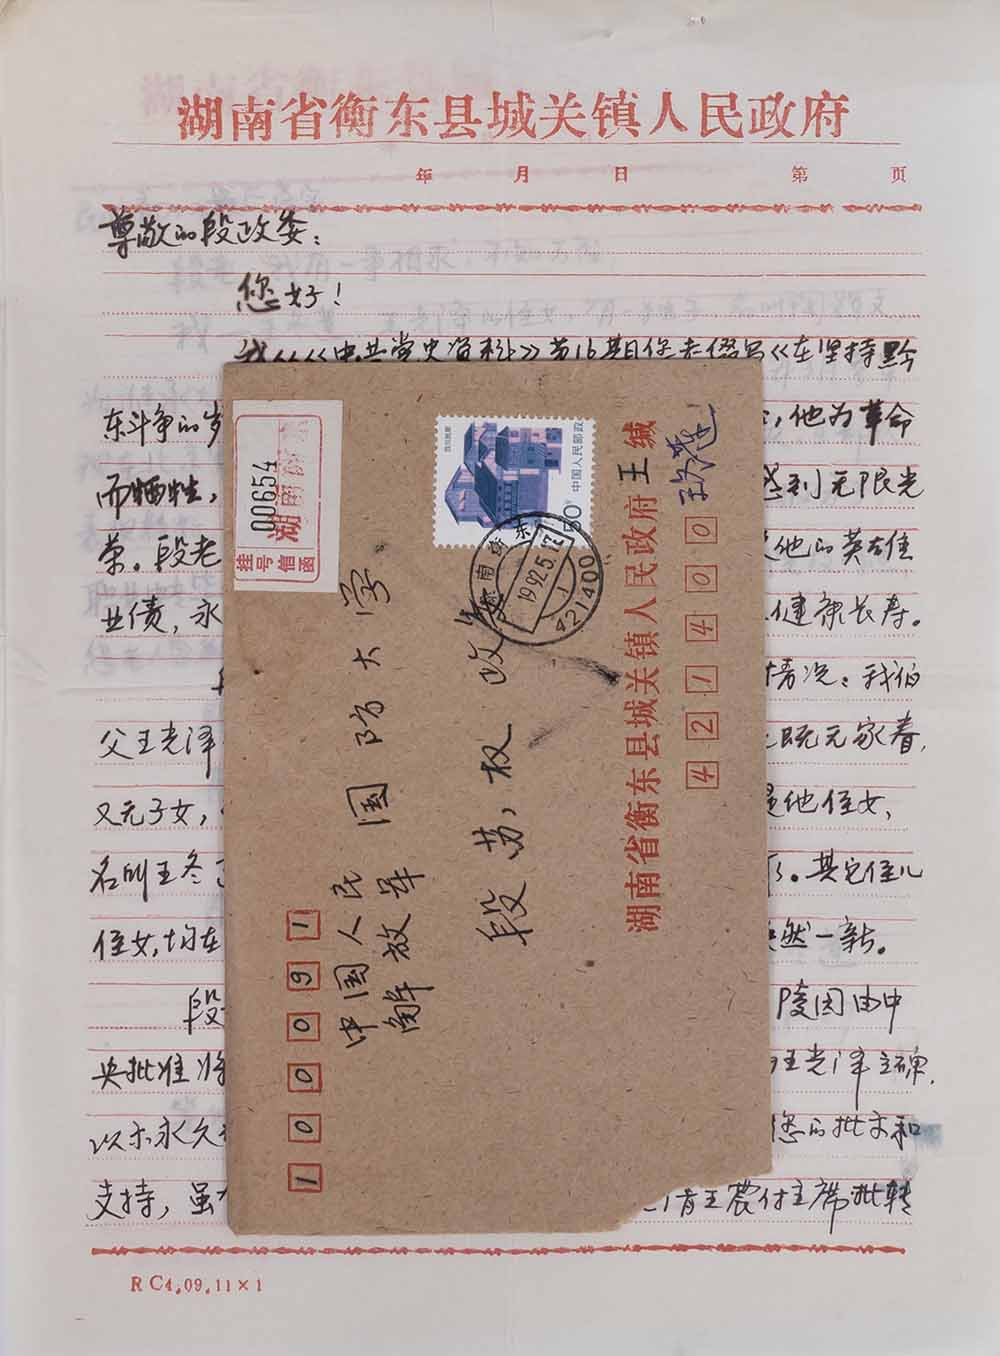 湖南省衡东县城关镇人民政府
年 月 日 第 页
尊敬的段政委：
您好！
我从《中共党史资料》第16期您老撰写《在坚持黔
东斗争的岁
，他为革命
而牺牲，
感到无限光
荣。段老
他的英雄
业绩，永
健康长寿。
情况：我伯
父王光泽
既无家眷，
又无子女，
是他侄女，
名叫王冬
了。其它侄儿
侄女，均在
焕然一新。
段
陵园由中
央批准将
王光泽立碑，
以示永久
您的批示和
支持，虽
请王震付主席批转
RC4.09.11×1
挂号信函
湖南衡东
00654
中国人民邮政
50分
四川民居
湖南衡东
1992.5.12
421400
100091
中国人民
解放军
国防大学
段苏权 政委
湖南省衡东县城关镇人民政府 王 缄
421400